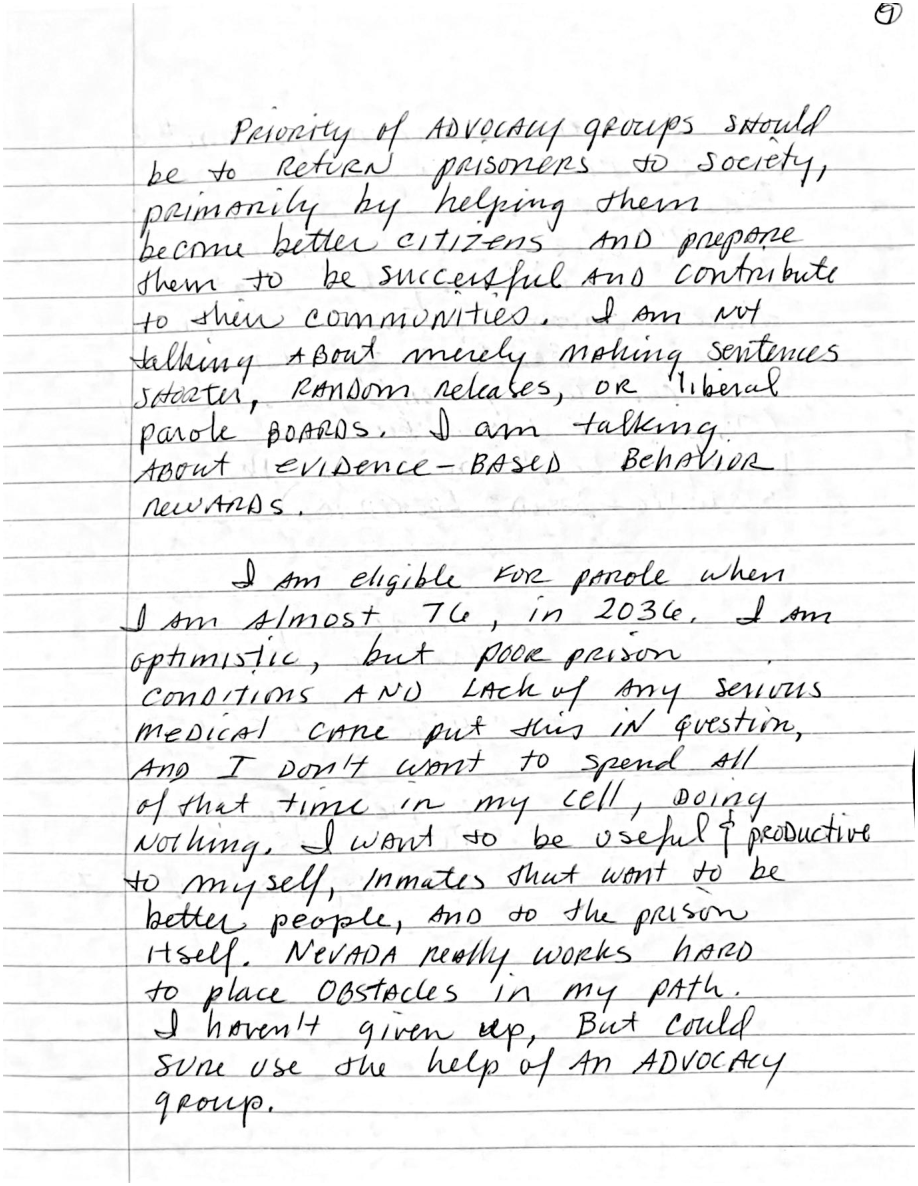 9
Priority of advocacy groups should
be to return prisoners to society,
primarily by helping them
become better citizens and prepare
them to be successful and contribute
to their communities. I am not
talking about merely making sentences
shorter, random releases, or liberal
parole boards. I am talking
about evidence-based behavior
rewards.
I am eligible for parole when
I am almost 76, in 2036. I am
optimistic, but poor prison
conditions and lack of any serious
medical care put this in question,
and I don't want to spend all
of that time in my cell, doing
nothing. I want to be useful & productive
to myself, inmates that want to be
better people, and to the prison
itself. Nevada really works hard
to place obstacles in my path.
I haven't given up, but could
sure use the help of an advocacy
group.